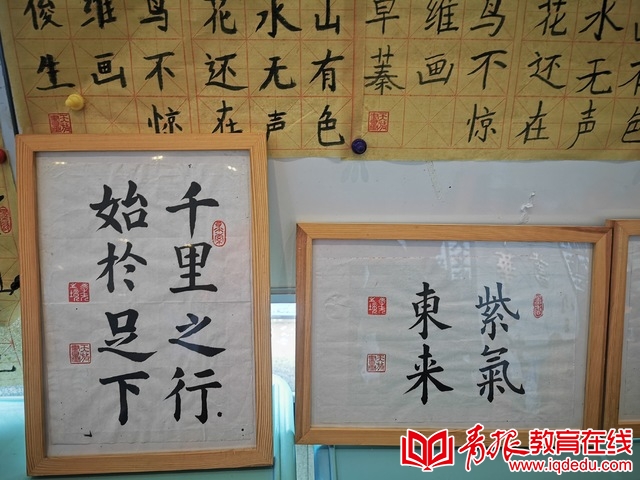 山有色
水无声
花还在
鸟不惊
维画
草
山有色
水无声
花还在
鸟不惊
维画
俊生
千里之行
始於足下
紫氣
東来
青报教育在线
www.iqdedu.com